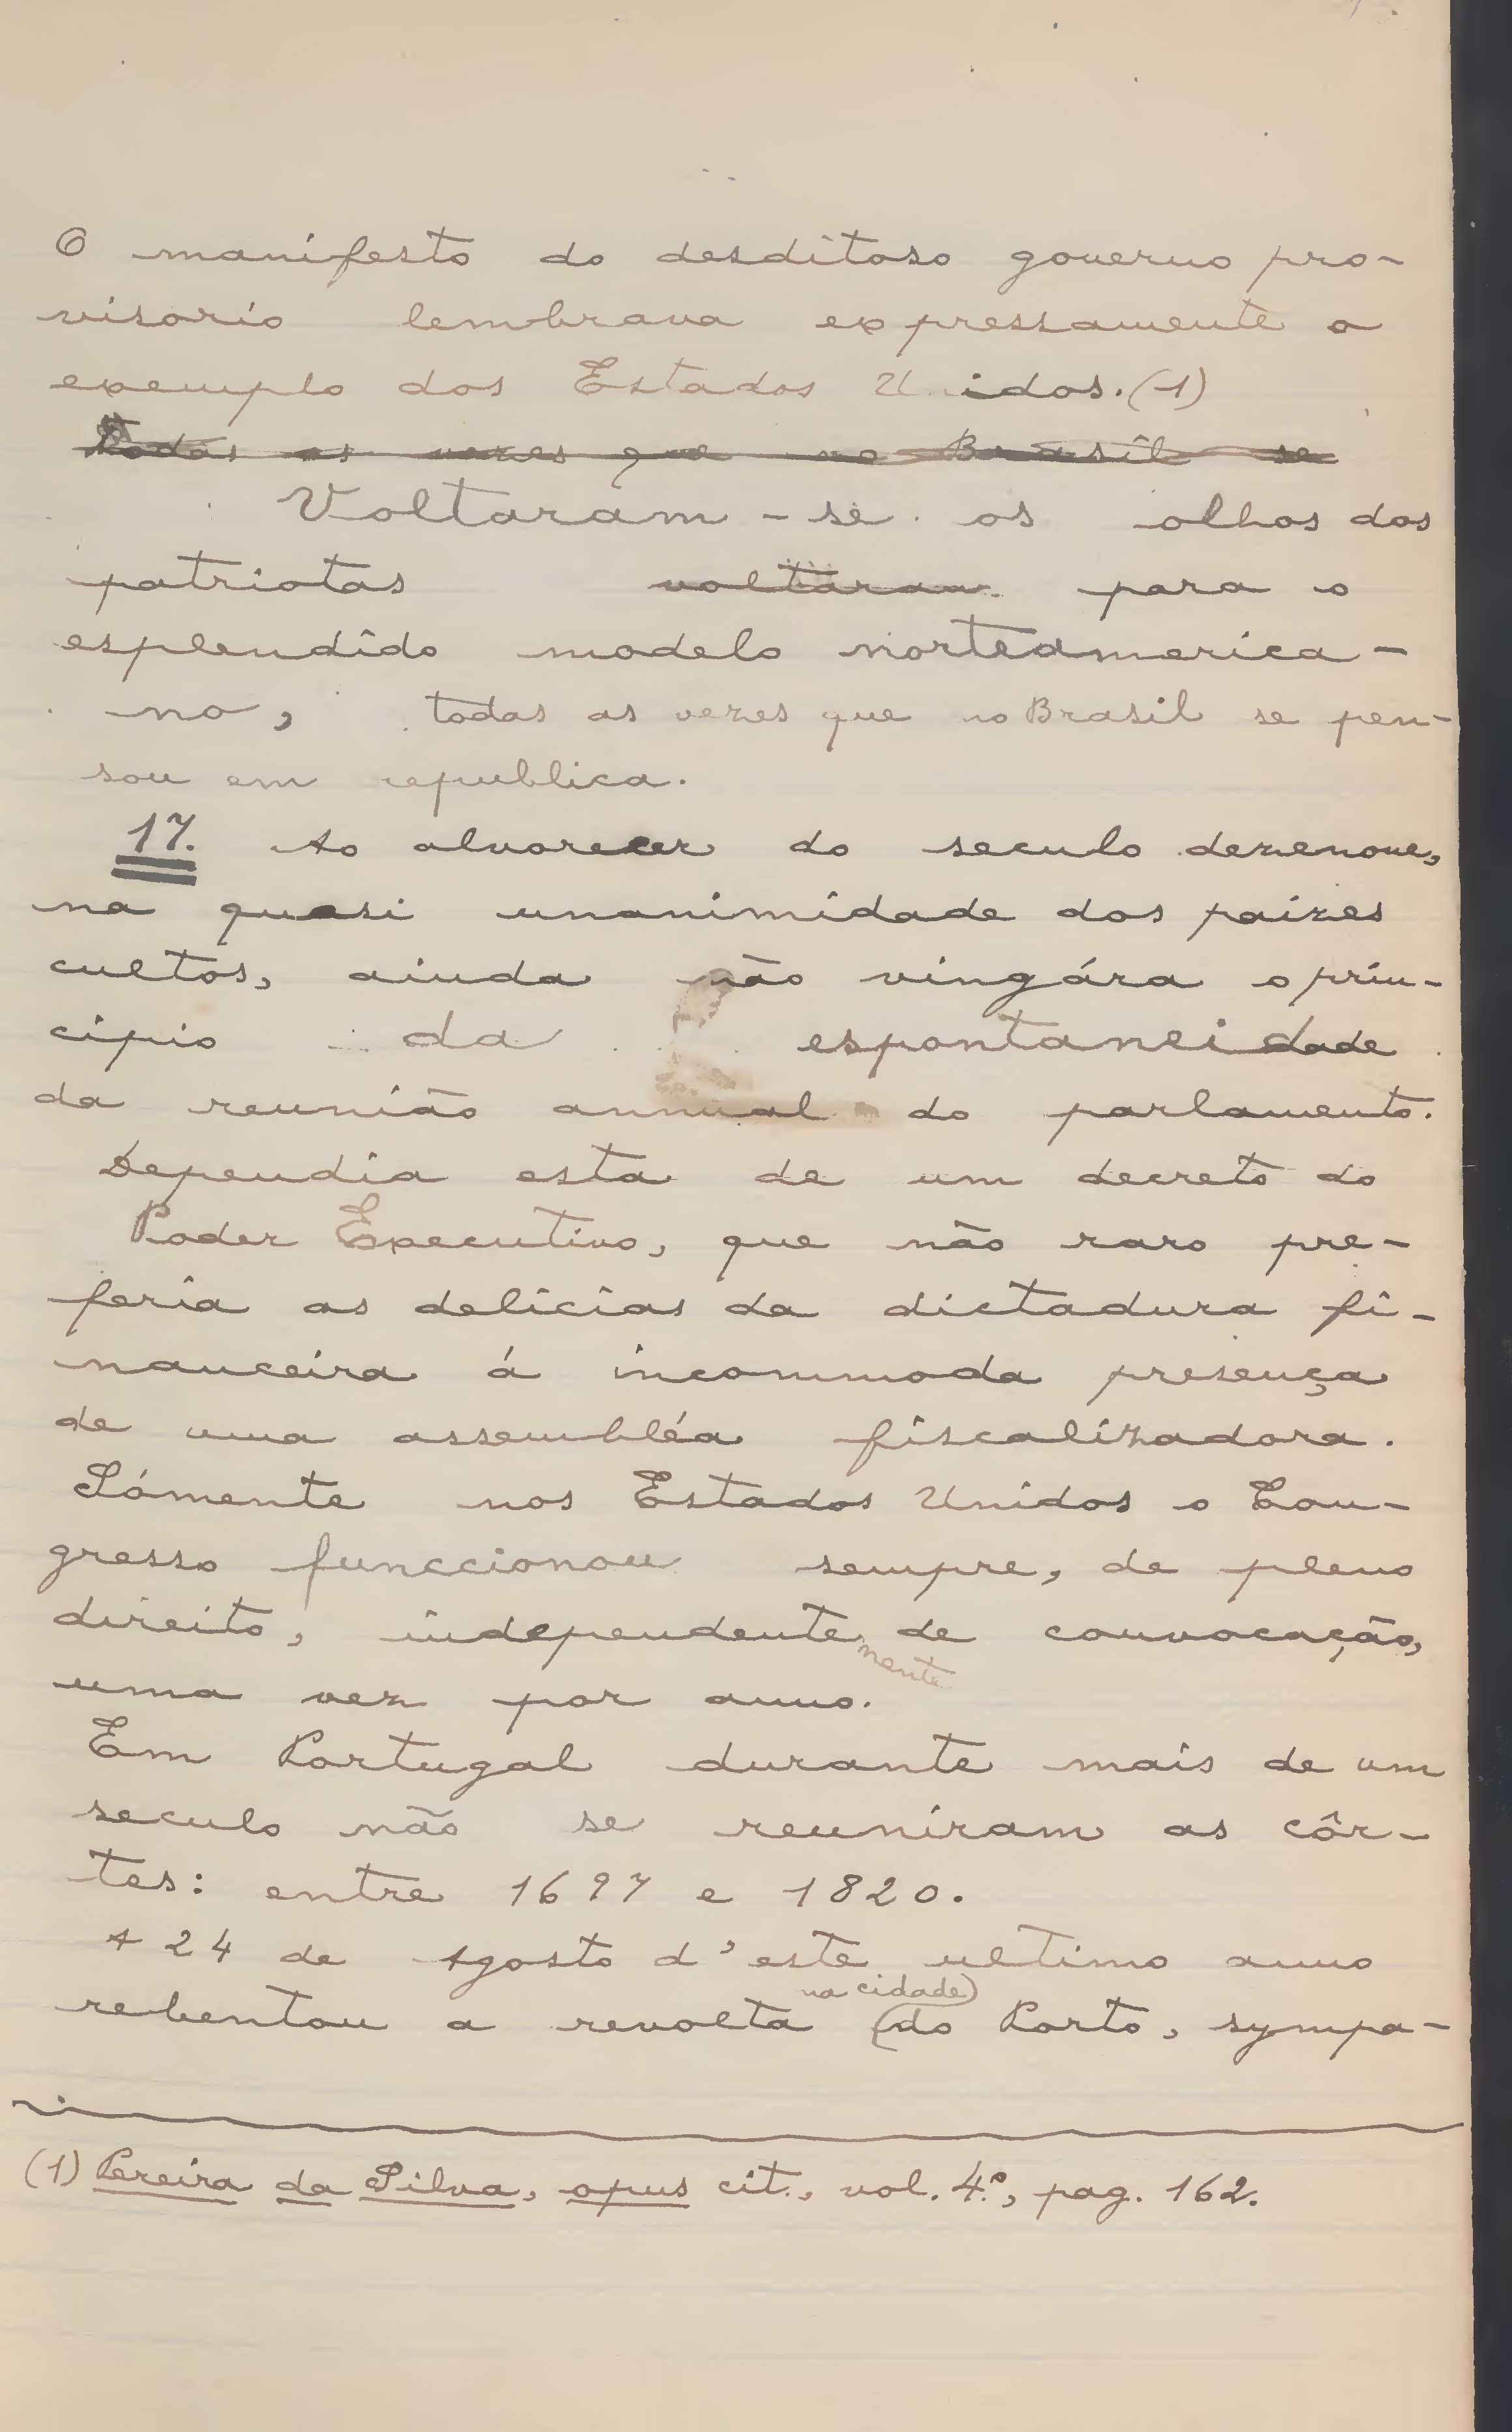 O manifesto do desditoso governo pro-
visorio lembrava expressamente o
exemplo dos Estados Unidos. (1)
Todas as vezes que no Brasil se
Voltaram-se os olhos dos
patriotas voltaram para o
esplendido modelo norteamerica-
no, todas as vezes que no Brasil se pen-
sou em republica.
17. Ao alvorecer do seculo dezenove,
na quasi unanimidade dos paizes
cultos, ainda não vingára o prin-
cipio da espontaneidade
da reunião annual do parlamento.
Dependia esta de um decreto do
Poder Executivo, que não raro pre-
feria as delicias da dictadura fi-
nanceira á incommoda presença
de uma assembléa fiscalizadora.
Sómente nos Estados Unidos o Con-
gresso funccionou sempre, de pleno
direito, independente de convocação,
mente
uma vez por anno.
Em Portugal durante mais de um
seculo não se reuniram as côr-
tes: entre 1697 e 1820.
A 24 de Agosto d'este ultimo anno
na cidade
rebentou a revolta do Porto, sympa-
(1) Pereira da Silva, opus cit., vol. 4.º, pag. 162.